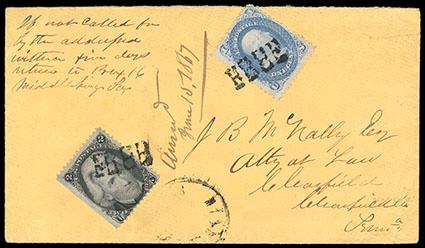 If not called for
by the addressed
within five days
return to Box 16
Middleburg Pa
Answd
June 15, 1867
FREE
FREE
2 2
J B McNally Esq
Atty at Law
Clearfield
Clearfield Co
Penna